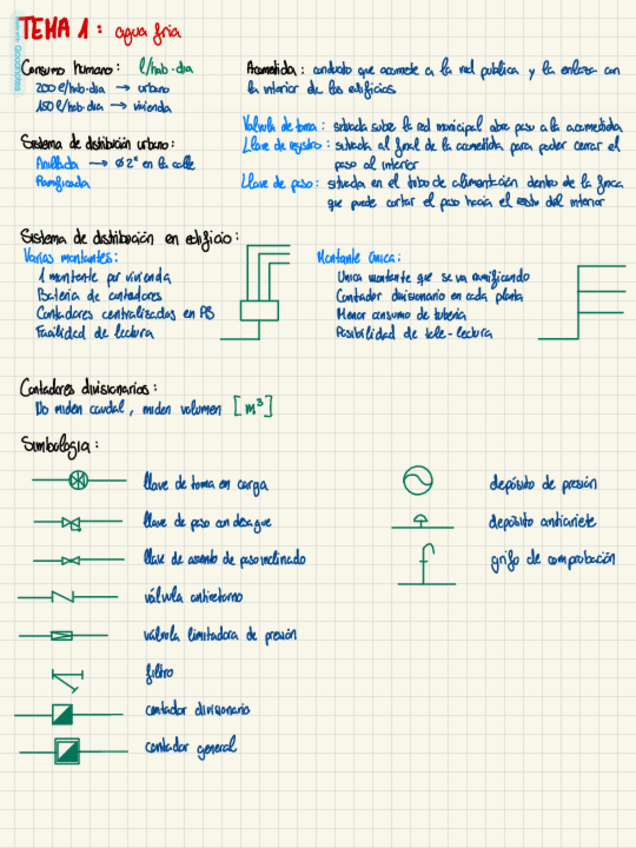 TEMA 1: agua fria
Consumo humano: l/hab·dia
200 l/hab·dia → urbano
150 l/hab·dia → vivienda
Acometida: conducto que acomete a la red publica y la enlaza con
la interior de los edificios
Sistema de distribución urbano:
Anillada → ø 2" en la calle
Ramificada
Valvula de toma: situada sobre la red municipal abre paso a la acometida
Llave de registro: situada al final de la acometida para poder cerrar el
paso al interior
Llave de paso: situada en el tubo de alimentación dentro de la finca
que puede cortar el paso hacia el resto del interior
Sistema de distribución en edificio:
Varias montantes:
1 montante por vivienda
Bateria de contadores
Contadores centralizados en PB
Facilidad de lectura
Montante única:
Unica montante que se va ramificando
Contador divisionario en cada planta
Menor consumo de tuberia
Posibilidad de tele-lectura
Contadores divisionarios:
No miden caudal, miden volumen [m³]
Simbología:
llave de toma en carga
llave de paso con desague
llave de asiento de paso inclinado
válvula antiretorno
válvula limitadora de presión
filtro
contador divisionario
contador general
depósito de presión
depósito antiariete
grifo de comprobación